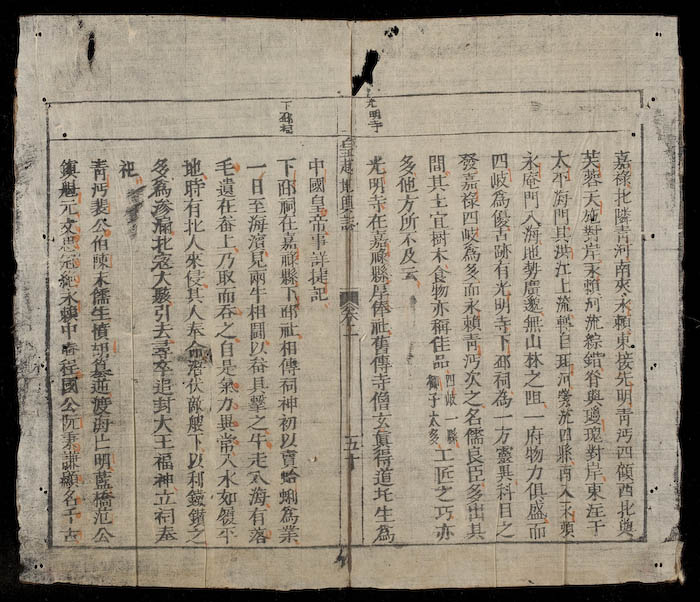 光明寺
嘉祿北隣青河南夾永賴東接先明青沔四傾西北與
芙蓉天施對岸永賴河流綜錯脊與璁瑰對岸東注于
太平海門其洪江上流轉自珥河旁流四縣南入永賴
永庵門入海地勢廣邈無山林之阻一府物力俱盛而
四岐爲優古跡有光明寺下邳祠爲一方靈異科目之
發嘉祿四岐爲多而永賴青沔次之名儒良臣多出其
間其土宜樹木食物亦稱佳品四岐縣獅子太多工匠之巧亦
多他方所不及云
光明寺在嘉祿縣厚俸社舊傳寺僧玄眞得道托生爲
皇越地輿誌
卷之一
五十
下邳祠
中國皇帝事詳捷記
下邳祠在嘉祿縣下邳社相傳祠神初以賣蛤蜊爲業
一日至海濱見兩牛相鬪以畚具擊之牛走入海有落
毛遺在畚上乃取而吞之自是氣力異常入水如履平
地時有北人來侵其人奉命潛伏敵艘下以利錢鑽之
多爲滲漏北寇大駭引去尋卒追封大王福神立祠奉
祀
青沔裴公伯陳末儒生憤胡篡逆渡海亡明藍橋范公
鎮魁元文思冠絶永賴中脊程國公阮秉謙顯名千古